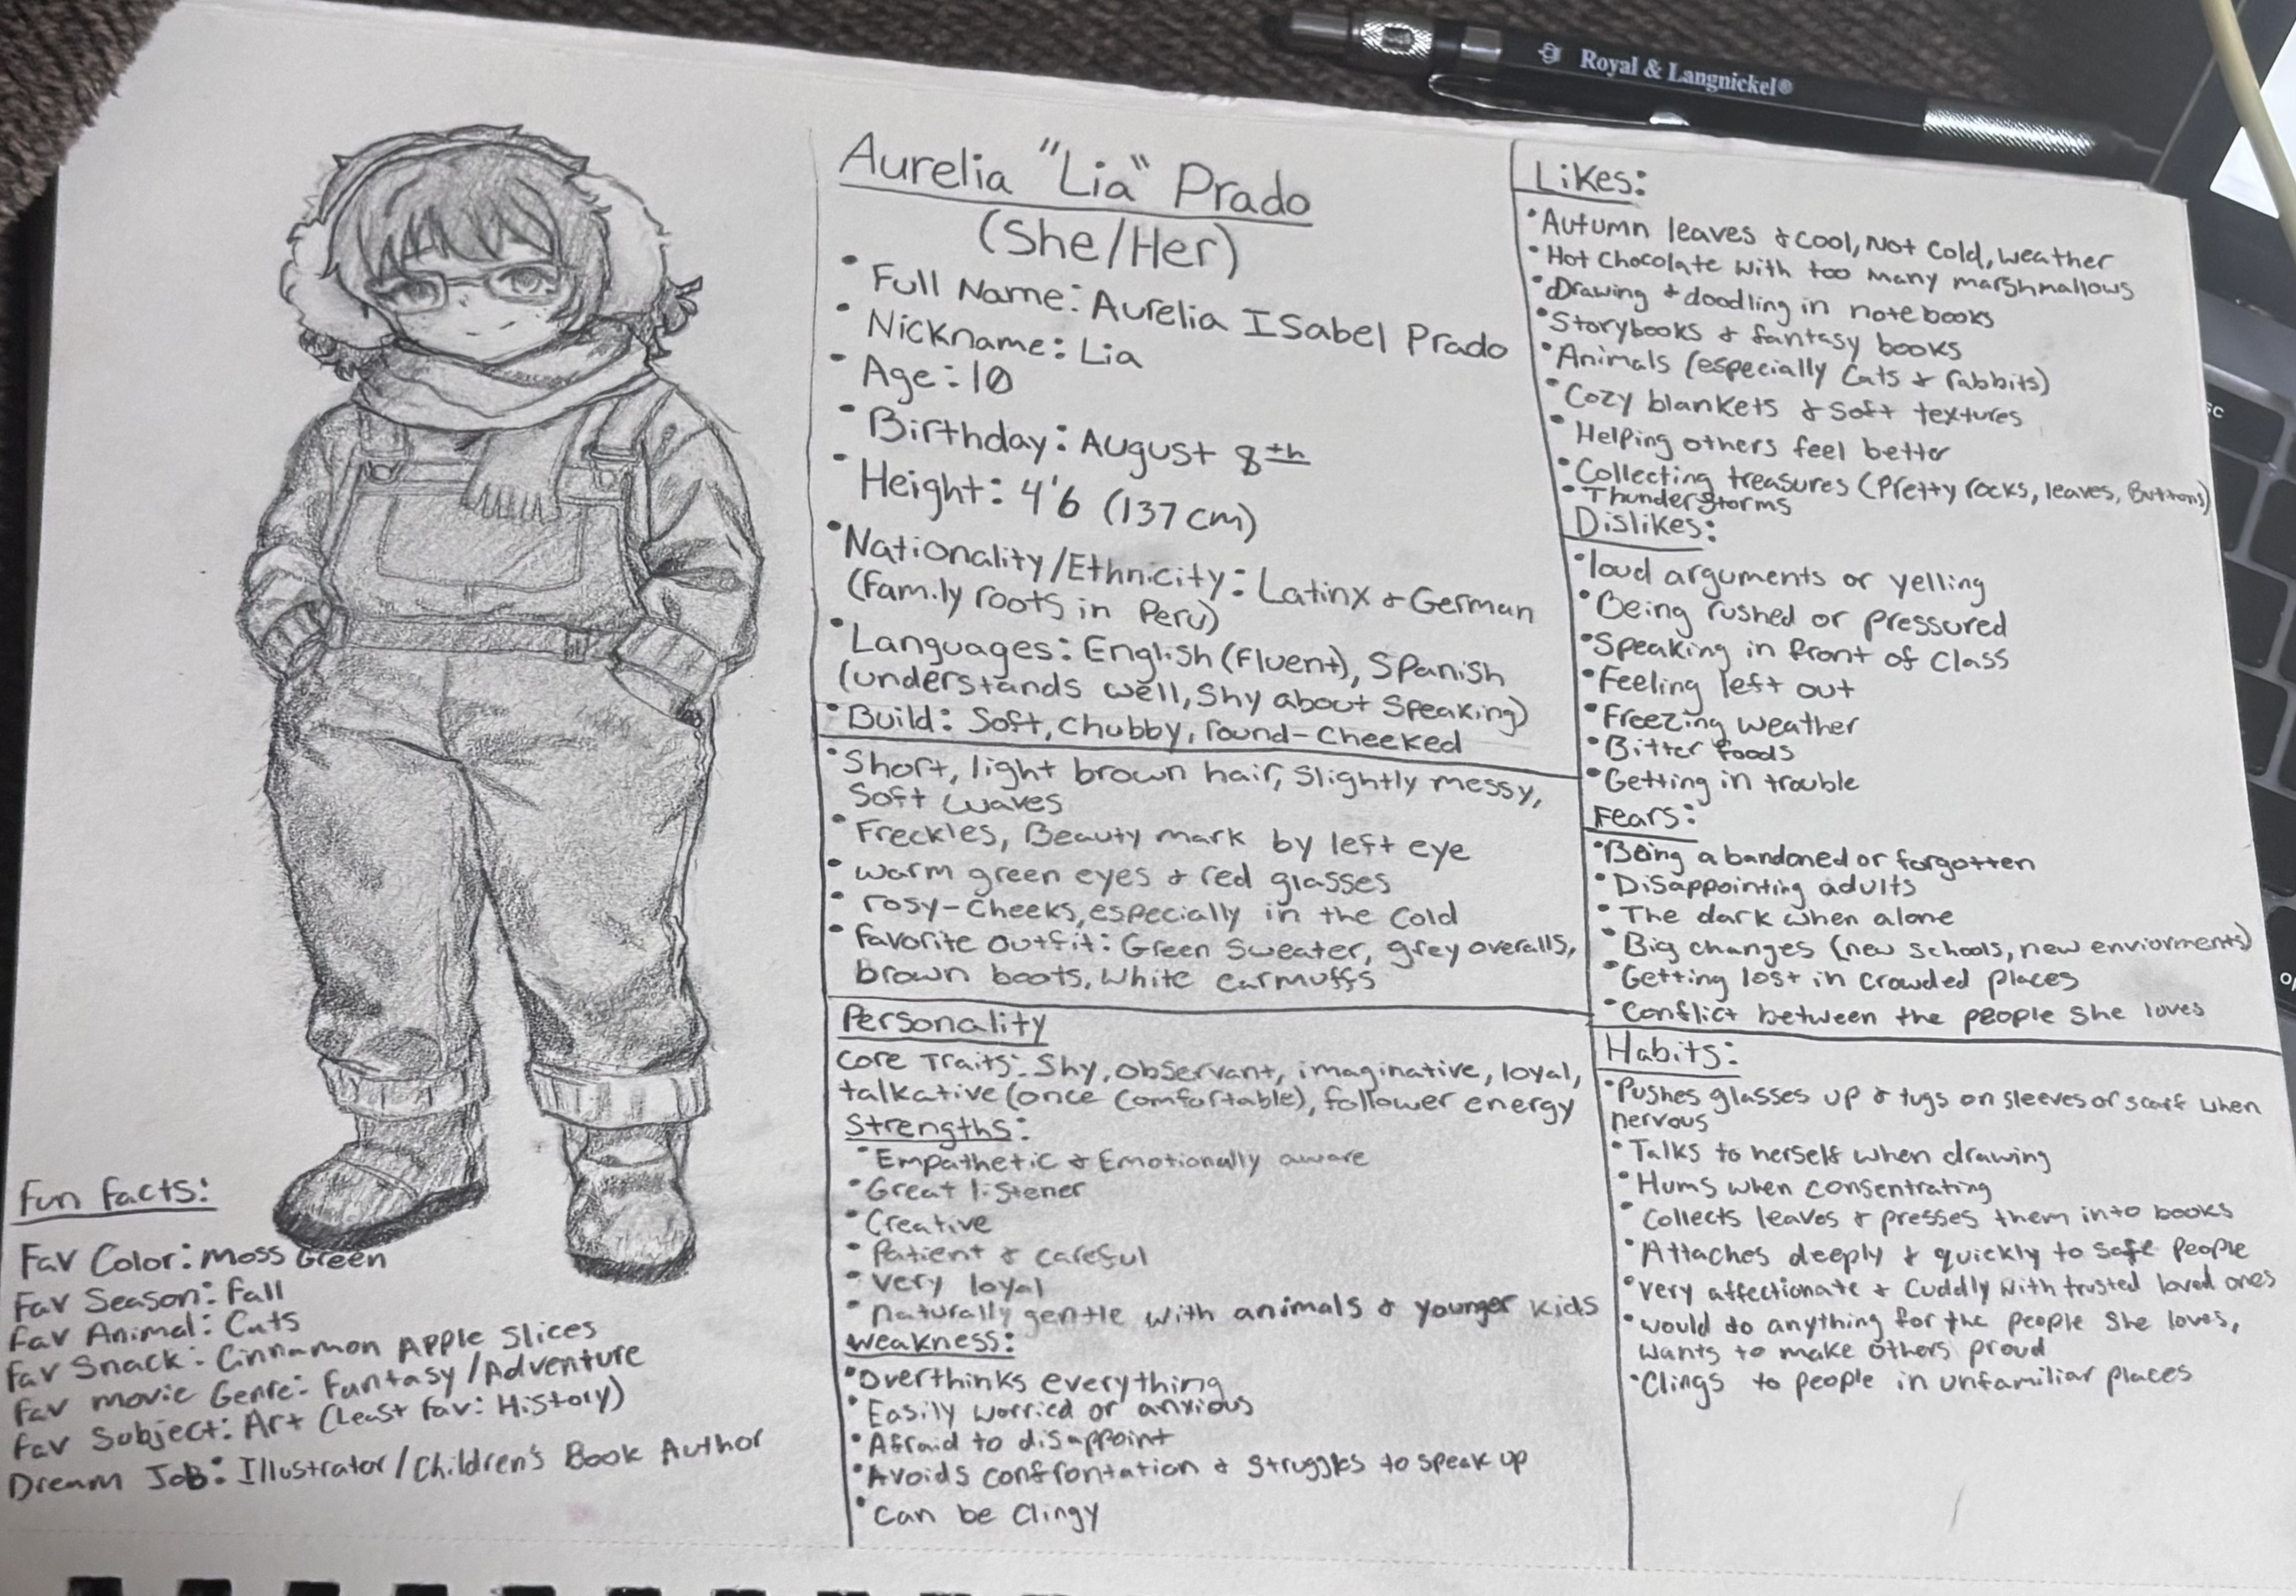 Royal & Langnickel®
Aurelia "Lia" Prado
(She/Her)
• Full Name: Aurelia Isabel Prado
• Nickname: Lia
• Age: 10
• Birthday: August 8th
• Height: 4'6 (137 cm)
• Nationality/Ethnicity: Latinx & German
(Family roots in Peru)
• Languages: English (Fluent), Spanish
(understands well, Shy about Speaking)
• Build: Soft, chubby, round-cheeked
• Short, light brown hair, slightly messy,
Soft waves
• Freckles, Beauty mark by left eye
• warm green eyes & red glasses
• rosy-cheeks, especially in the cold
• favorite outfit: Green Sweater, grey overalls,
brown boots, white earmuffs
Personality
Core Traits: Shy, observant, imaginative, loyal,
talkative (once comfortable), follower energy
Strengths:
• Empathetic & Emotionally aware
• Great listener
• Creative
• Patient & careful
• very loyal
• naturally gentle with animals & younger kids
weakness:
• overthinks everything
• Easily worried or anxious
• Afraid to disappoint
• Avoids confrontation & struggles to speak up
• can be clingy
Likes:
• Autumn leaves & cool, not cold, weather
• Hot chocolate with too many marshmallows
• Drawing & doodling in notebooks
• Storybooks & fantasy books
• Animals (especially cats & rabbits)
• Cozy blankets & soft textures
• Helping others feel better
• Collecting treasures (Pretty rocks, leaves, Buttons)
• Thunderstorms
Dislikes:
• loud arguments or yelling
• Being rushed or pressured
• Speaking in front of class
• Feeling left out
• Freezing weather
• Bitter foods
• Getting in trouble
Fears:
• Being abandoned or forgotten
• Disappointing adults
• The dark when alone
• Big changes (new schools, new enviorments)
• Getting lost in crowded places
• Conflict between the people she loves
Habits:
• Pushes glasses up & tugs on sleeves or scarf when
nervous
• Talks to herself when drawing
• Hums when consentrating
• Collects leaves & presses them into books
• Attaches deeply & quickly to safe people
• very affectionate & cuddly with trusted loved ones
• would do anything for the people she loves,
wants to make others proud
• Clings to people in unfamiliar places
Fun facts:
Fav Color: Moss Green
Fav Season: Fall
Fav Animal: Cats
Fav Snack: Cinnamon Apple Slices
Fav movie Genre: Fantasy/Adventure
Fav Subject: Art (Least fav: History)
Dream Job: Illustrator/Children's Book Author